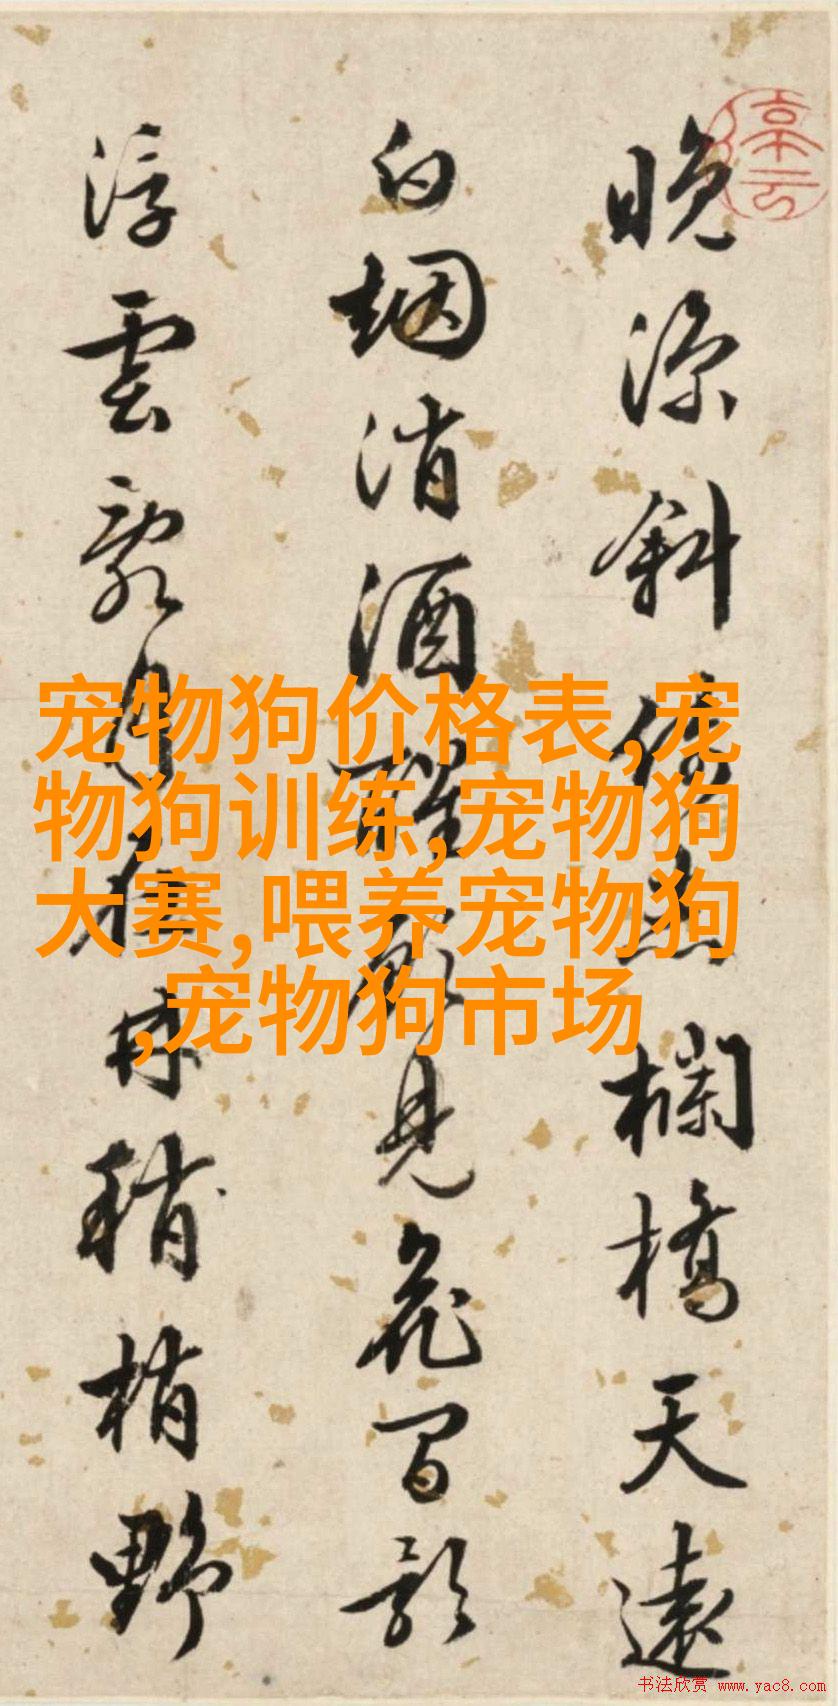 晚涼斜倚欄橋天遠
白烟消酒醒見花間影
浮雲月林稍梢野
宠物狗价格表,宠
物狗训练,宠物狗
大赛,喂养宠物狗
,宠物狗市场
书法欣赏 www.yac8.com